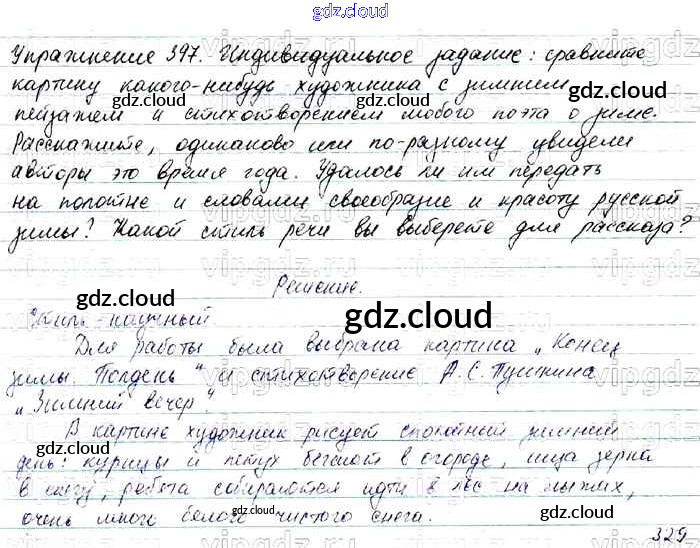 gdz.cloud
Упражнение 397. Индивидуальное задание: сравните
картину какого-нибудь художника с зимним
пейзажем и стихотворением любого поэта о зиме.
Расскажите, одинаково или по-разному увидели
авторы это время года. Удалось ли им передать
на полотне и словами своеобразие и красоту русской
зимы? Какой стиль речи вы выберете для рассказа?
Решение.
Стиль - научный.
Для работы была выбрана картина „Конец
зимы. Полдень“ и стихотворение А.С. Пушкина
„Зимний вечер“.
В картине художник рисует спокойный зимний
день: курицы и петух бегают в огороде, ища зерна
в снегу, ребята собираются идти в лес на лыжах,
очень много белого чистого снега.
329